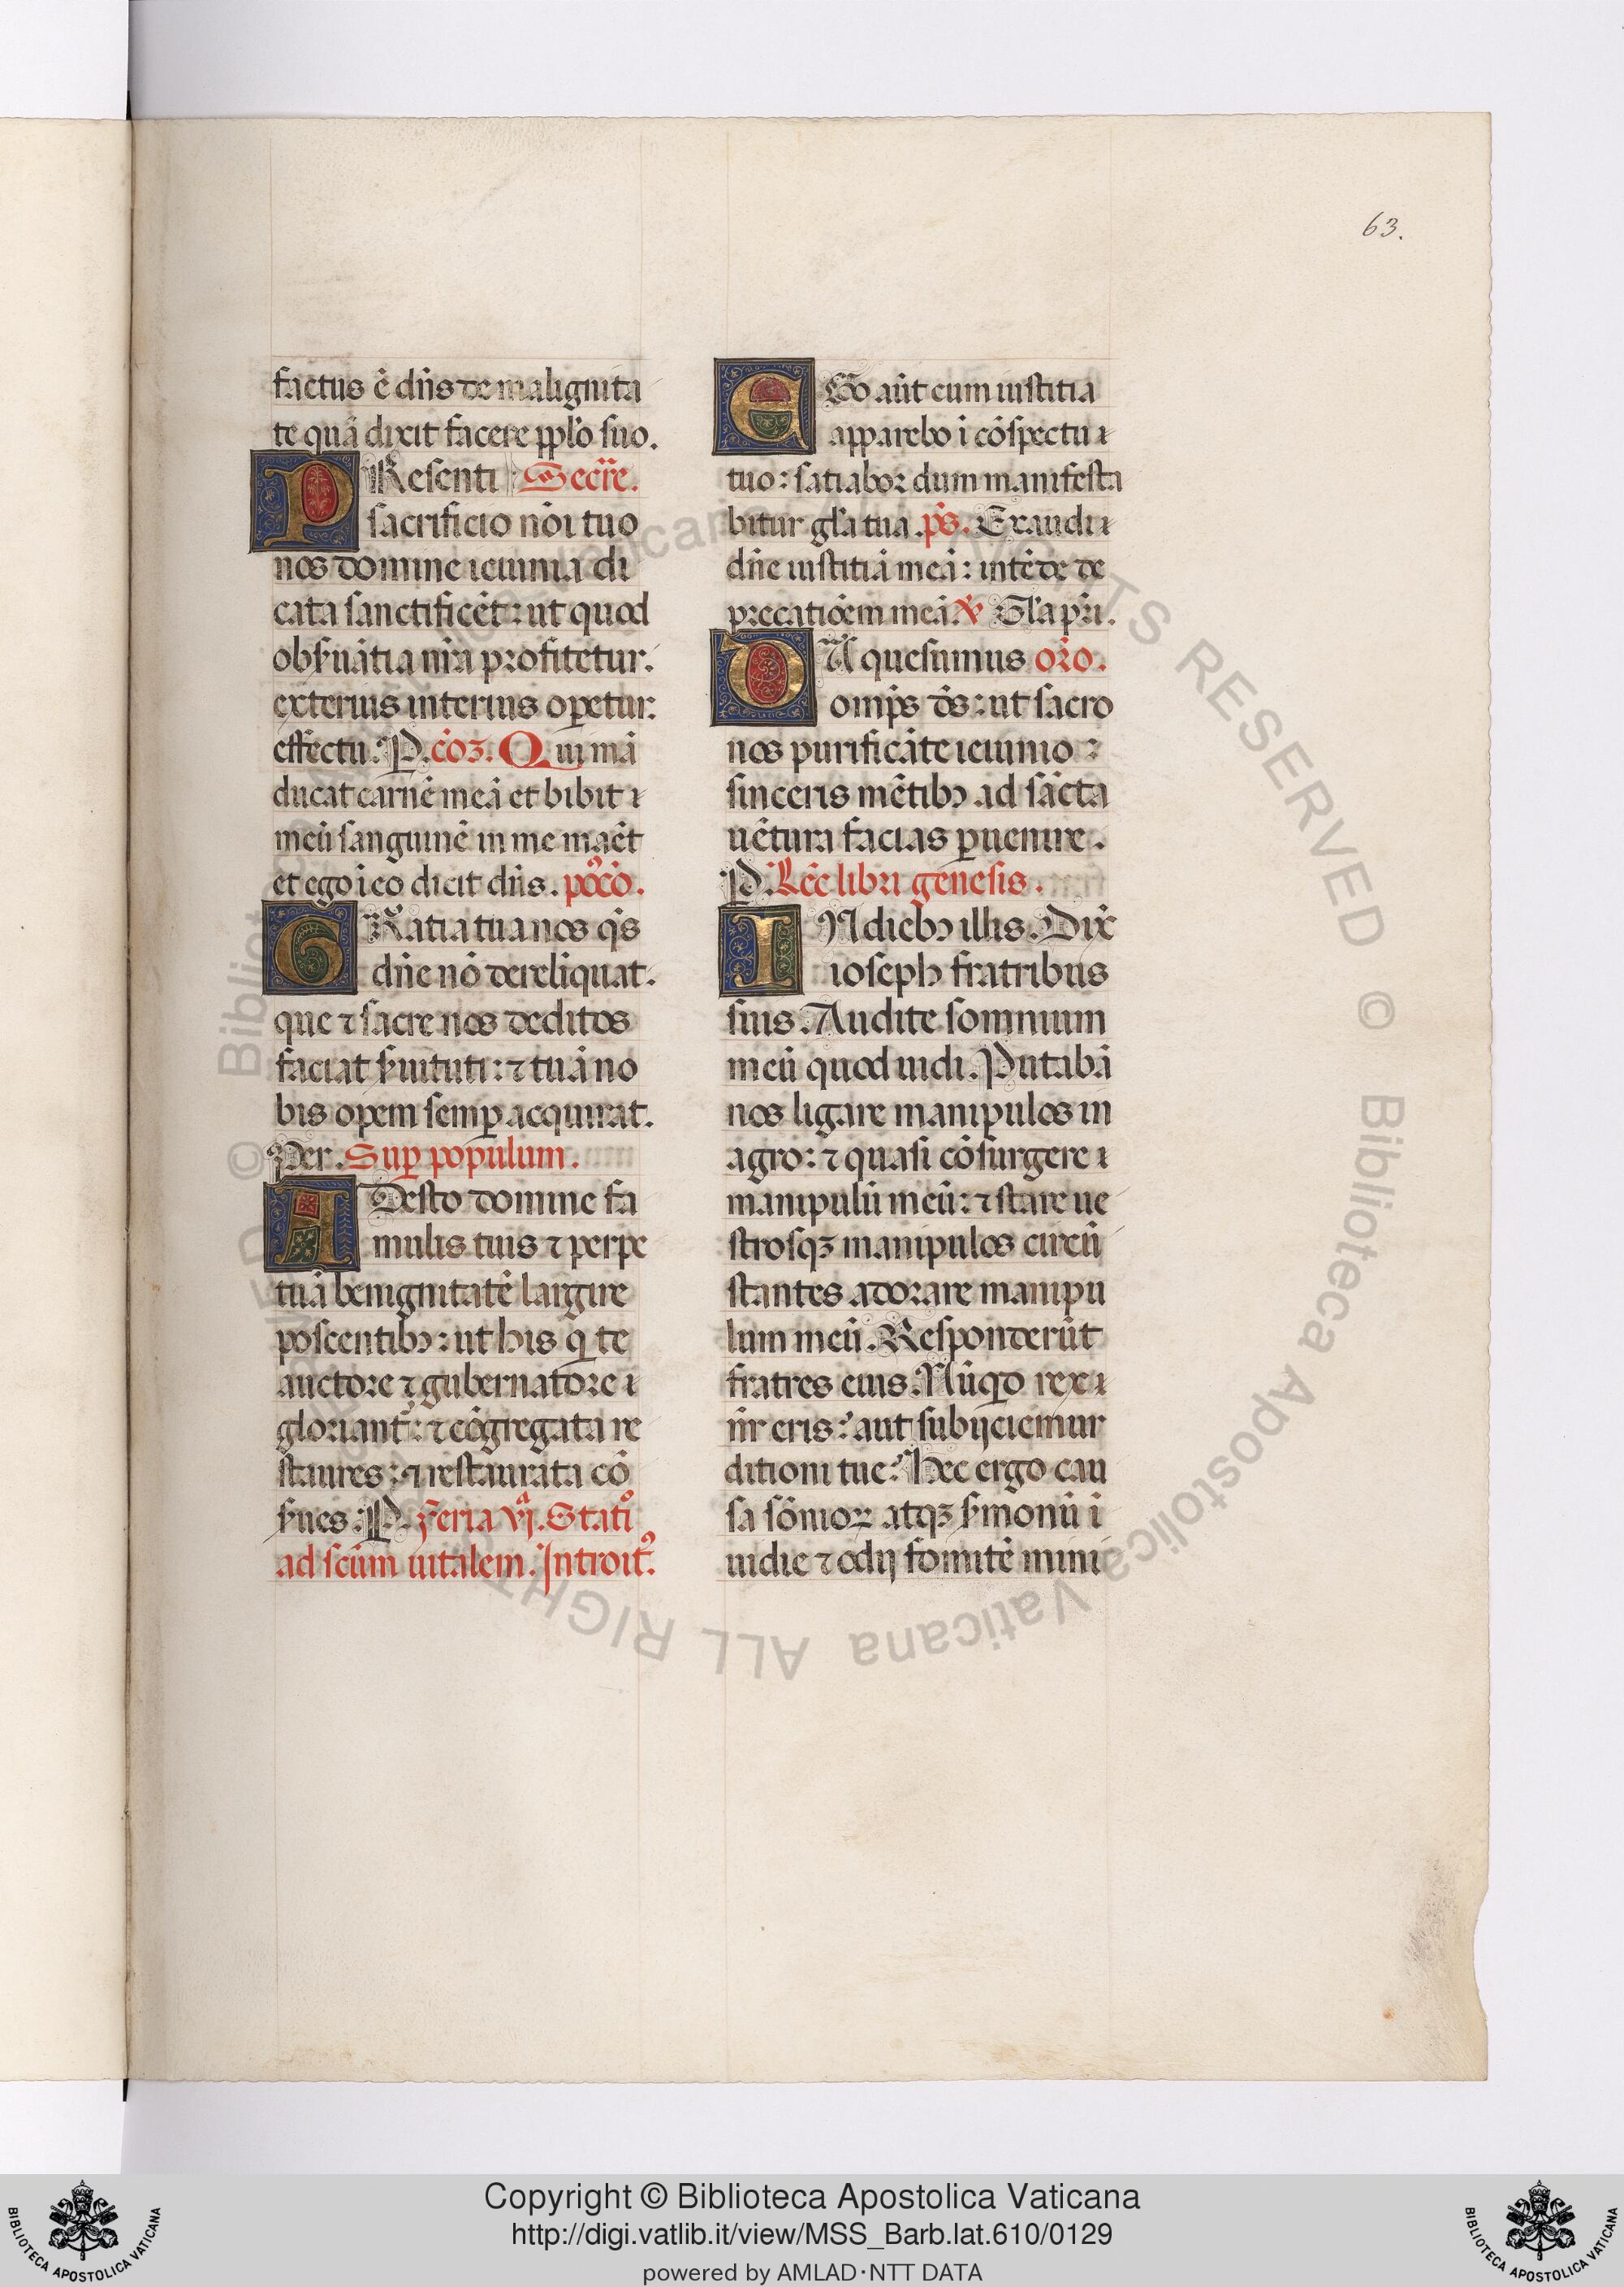 63.
factus ē dn̄s de maligníta
te quā dixit facere pp̄lo suo.
PResenti Secr̄e.
sacrificio nōi tuo
nos domine ieiunia di
cata sanctificēt: ut quod
obs̄uātia nr̄a profitetur.
exterius interius oꝑetur.
effectu. P. cōꝫ. Qui mā
ducat carnē meā et bibit
meū sanguinē in me maēt
et ego ī eo dicit dn̄s. po᷒cō.
GRatia tua nos qs̄
dn̄e nō dereliquat.
que ⁊ sacre nos deditos
faciat s̄uituti: ⁊ tuā no
bis opem semꝑ acquirat.
Per. Suꝑ populum.
ADesto domine fa
mulis tuis ⁊ perpe
tuā benignitatē largire
poscentibꝰ: ut his q̄ te
auctore ⁊ gubernatore
gloriant᷑: ⁊ cōgregata re
staures: ⁊ restaurata cō
s̄ues. P. Feria vjᵃ. Statiᵒ
ad scūm uitalem. Introitꝰ.
EGo aūt cum iustitia
apparebo ī cōspectu
tuo: satiabor dum manifesta
bitur gl̄a tua. ps̄. Exaudi
dn̄e iustitiā meā: intēde de
precatiōem meā. ℣ Gl̄a pr̄i.
DA quesumus or̄o.
omp̄s ds̄: ut sacro
nos purificāte ieiunio:
sinceris mētibꝰ ad sācta
uētura facias ꝑuenire.
P. Lc̄c libri genesis.
IN diebꝰ illis. Dix̄
ioseph fratribus
suis. Audite somnium
meū quod uidi. Putabā
nos ligare manipulos in
agro: ⁊ quasi cōsurgere
manipulū meū: ⁊ stare ue
strosqꝫ manipulos circū
stantes adorare manipu
lum meū. Responderūt
fratres eius. Nūqd rex
nr̄ eris? aut subijciemur
ditioni tue? Hec ergo cau
sa sōnioꝝ atqꝫ s̄monū ī
uidie ⁊ odij fomitē mini
Copyright © Biblioteca Apostolica Vaticana
http://digi.vatlib.it/view/MSS_Barb.lat.610/0129
powered by AMLAD·NTT DATA
BIBLIOTECA APOSTOLICA VATICANA
BIBLIOTECA APOSTOLICA VATICANA